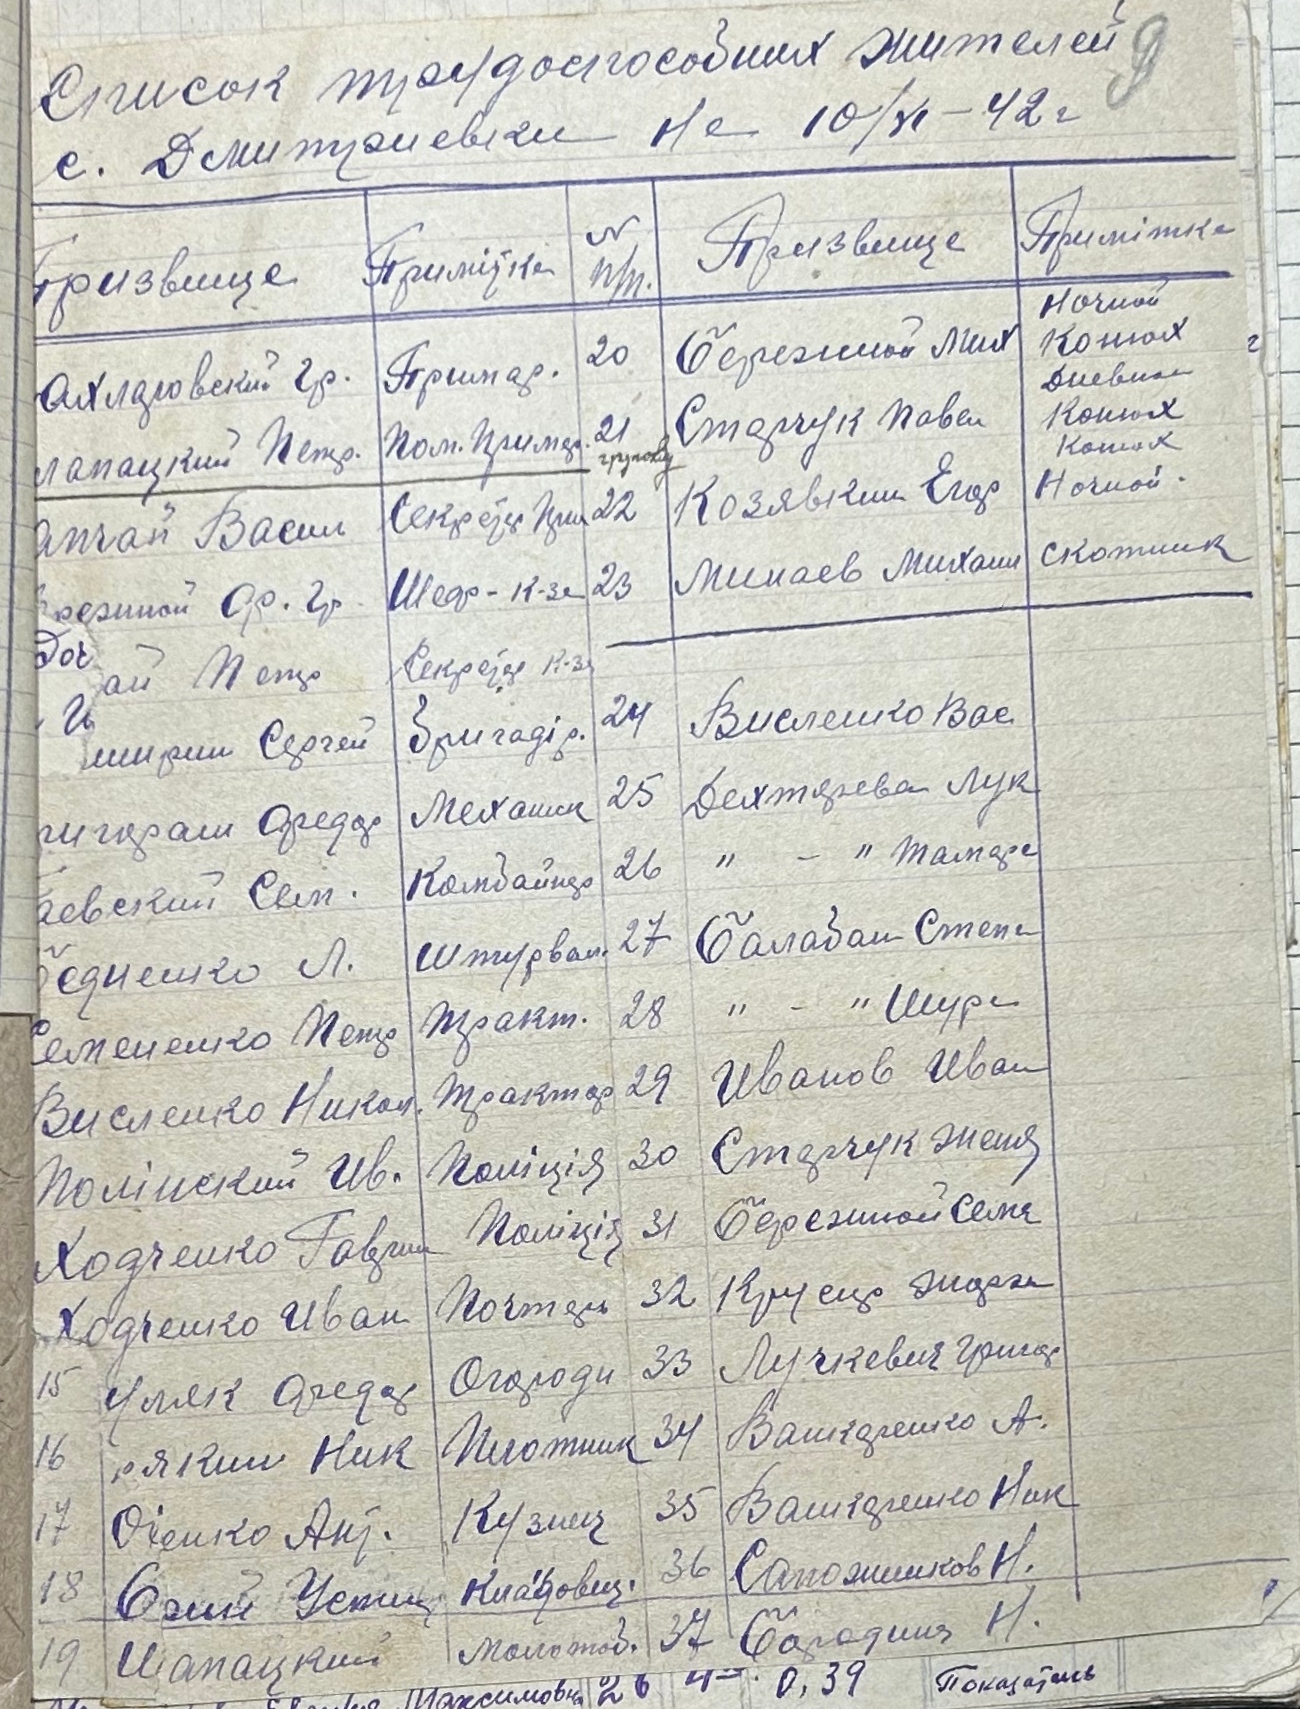 Список трудоспособних жителей 9
с. Дмитриевки на 10/XI-42 г
Призвище Примітка № п/п. Призвище Примітка
Гр. Примар. 20 Бережной Мих Ночной Конюх
лапацкий Петр. Пом. Примар. 21 Старчук Павел Дневной Конюх
групов
апчай Васил Секретар Прим 22 Козявкин Егор Конюх Ночной.
ережной Ф. Гр. Шеф-к-за 23 Минаев Михаил скотник
Доч
ай Петр Секретар к-за
Сергей Бригадір. 24 Висленко Вас
Федор Механик 25 Дехтярева Лук
аевский Сем. Комбайнер 26 " - " Тамара
Л. Штурвал. 27 Балабан Степа
Семененко Петр Тракт. 28 " - " Шура
Висленко Никол. Трактор 29 Иванов Иван
Полінский Ив. Поліція 30 Старчук Женя
Ходченко Гаврил Поліція 31 Бережной Сема
Ходченко Иван Почтар 32 Жоржа
15 Федор Огородн 33 Лучкевич Григор
16 Ник Плотник 34 Вашкаренко А.
17 Ант. Кузнец 35 Вашкаренко Ник
18 Устин Кладовщ. 36 Сапожников Н.
19 Шапацкий Молотоб. 37 Бородина Н.
Максимовна 26 0,39 Показатель